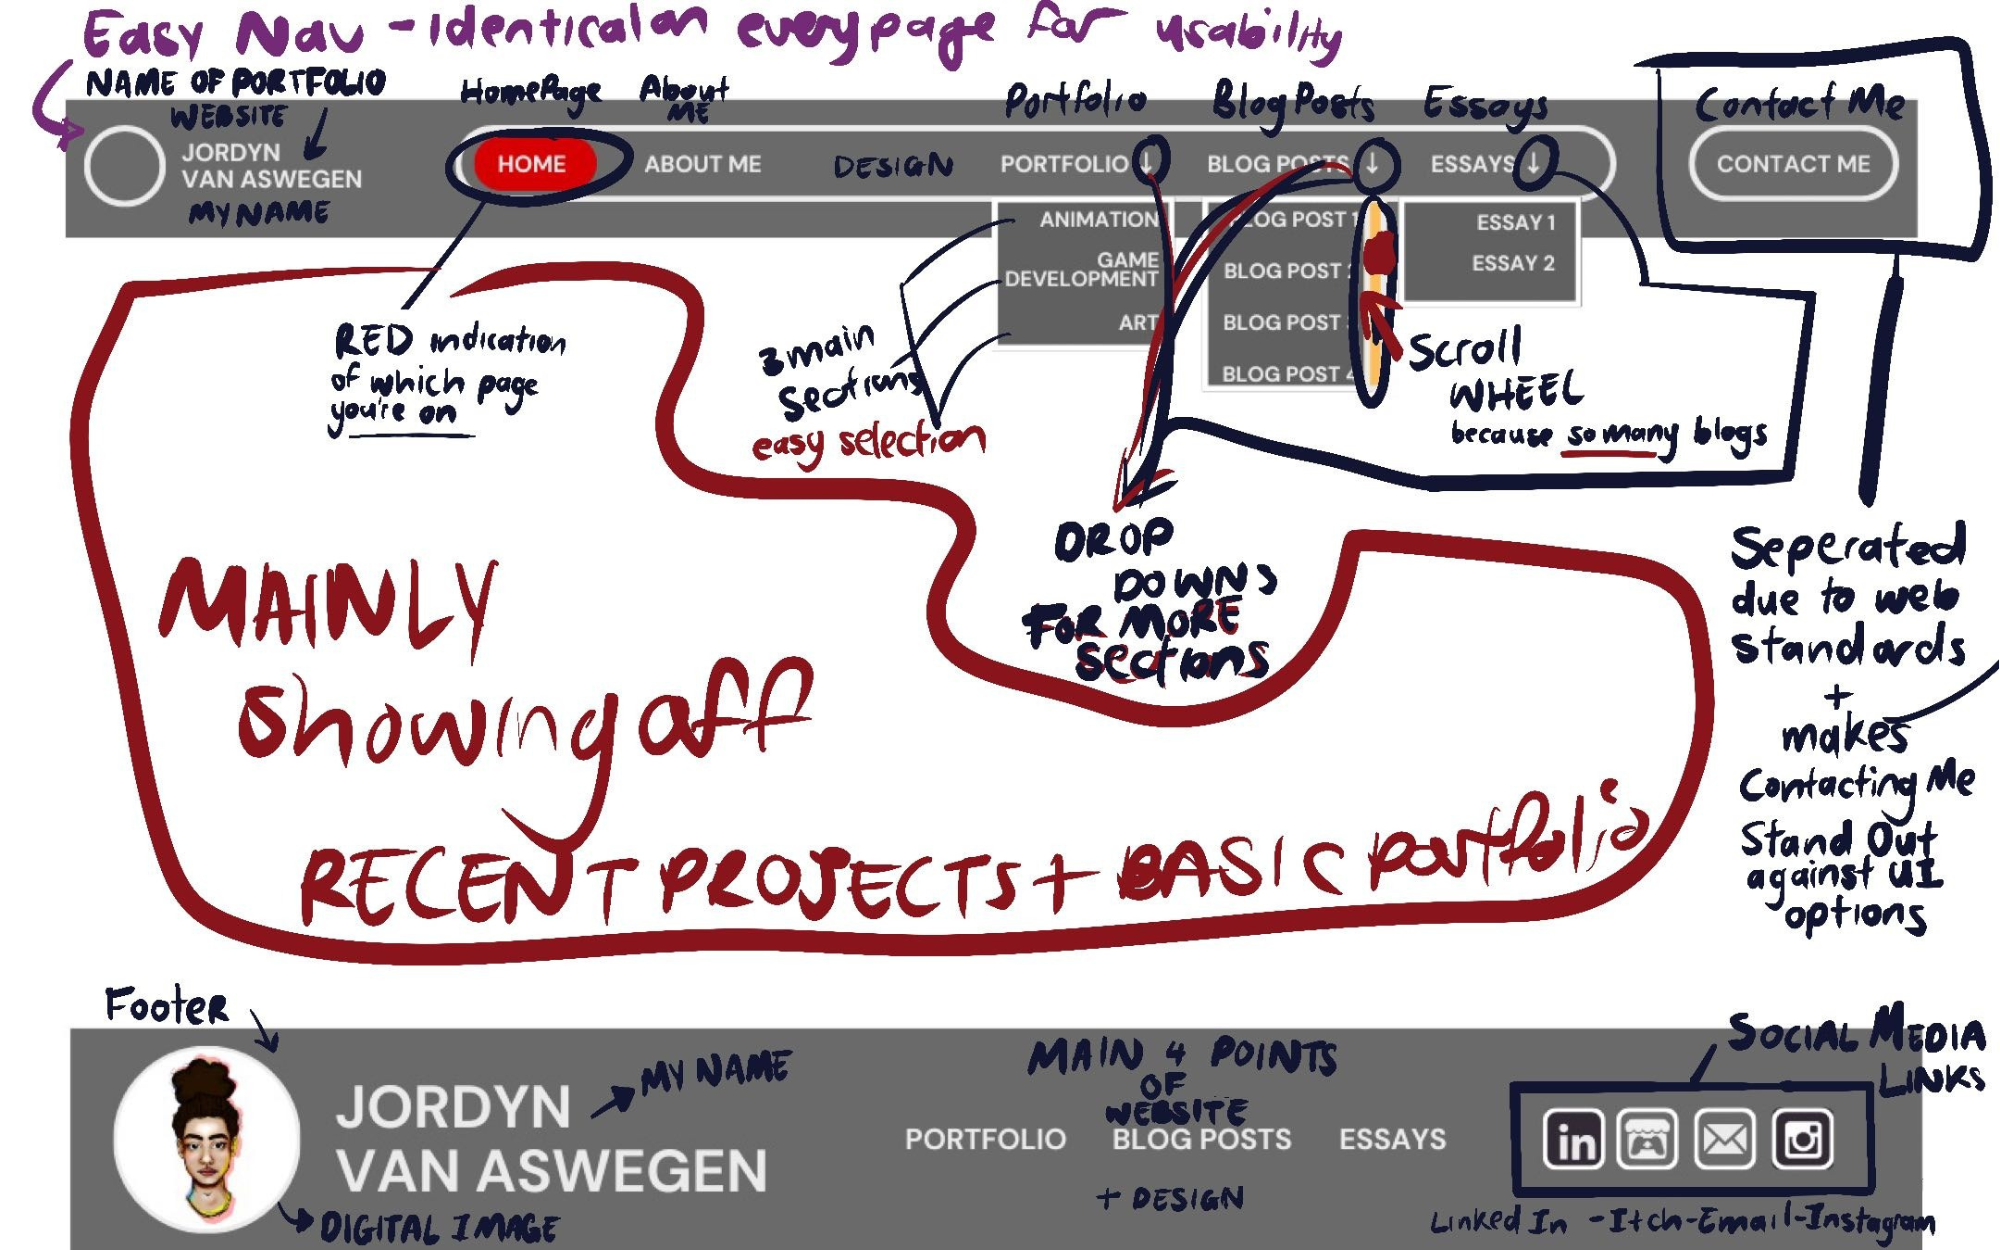 Easy Nav - Identical on every page for usability
NAME OF PORTFOLIO
WEBSITE
HomePage
About
ME
Portfolio
Blog Posts
Essays
Contact Me
JORDYN
VAN ASWEGEN
MY NAME
HOME
ABOUT ME
DESIGN
PORTFOLIO ↓
BLOG POSTS ↓
ESSAYS ↓
CONTACT ME
ANIMATION
GAME
DEVELOPMENT
ART
BLOG POST 1
BLOG POST 2
BLOG POST 3
BLOG POST 4
ESSAY 1
ESSAY 2
RED indication
of which page
you're on
3 main
sections
easy selection
Scroll
WHEEL
because so many blogs
DROP
DOWNS
FOR MORE
sections
Seperated
due to web
standards
+
makes
Contacting Me
Stand Out
against UI
options
MAINLY
showing off
RECENT PROJECTS + BASIC portfolio
Footer
JORDYN
VAN ASWEGEN
MY NAME
DIGITAL IMAGE
MAIN 4 POINTS
OF
WEBSITE
PORTFOLIO
BLOG POSTS
ESSAYS
+ DESIGN
SOCIAL MEDIA
LINKS
in
Linked In - Itch - Email - Instagram